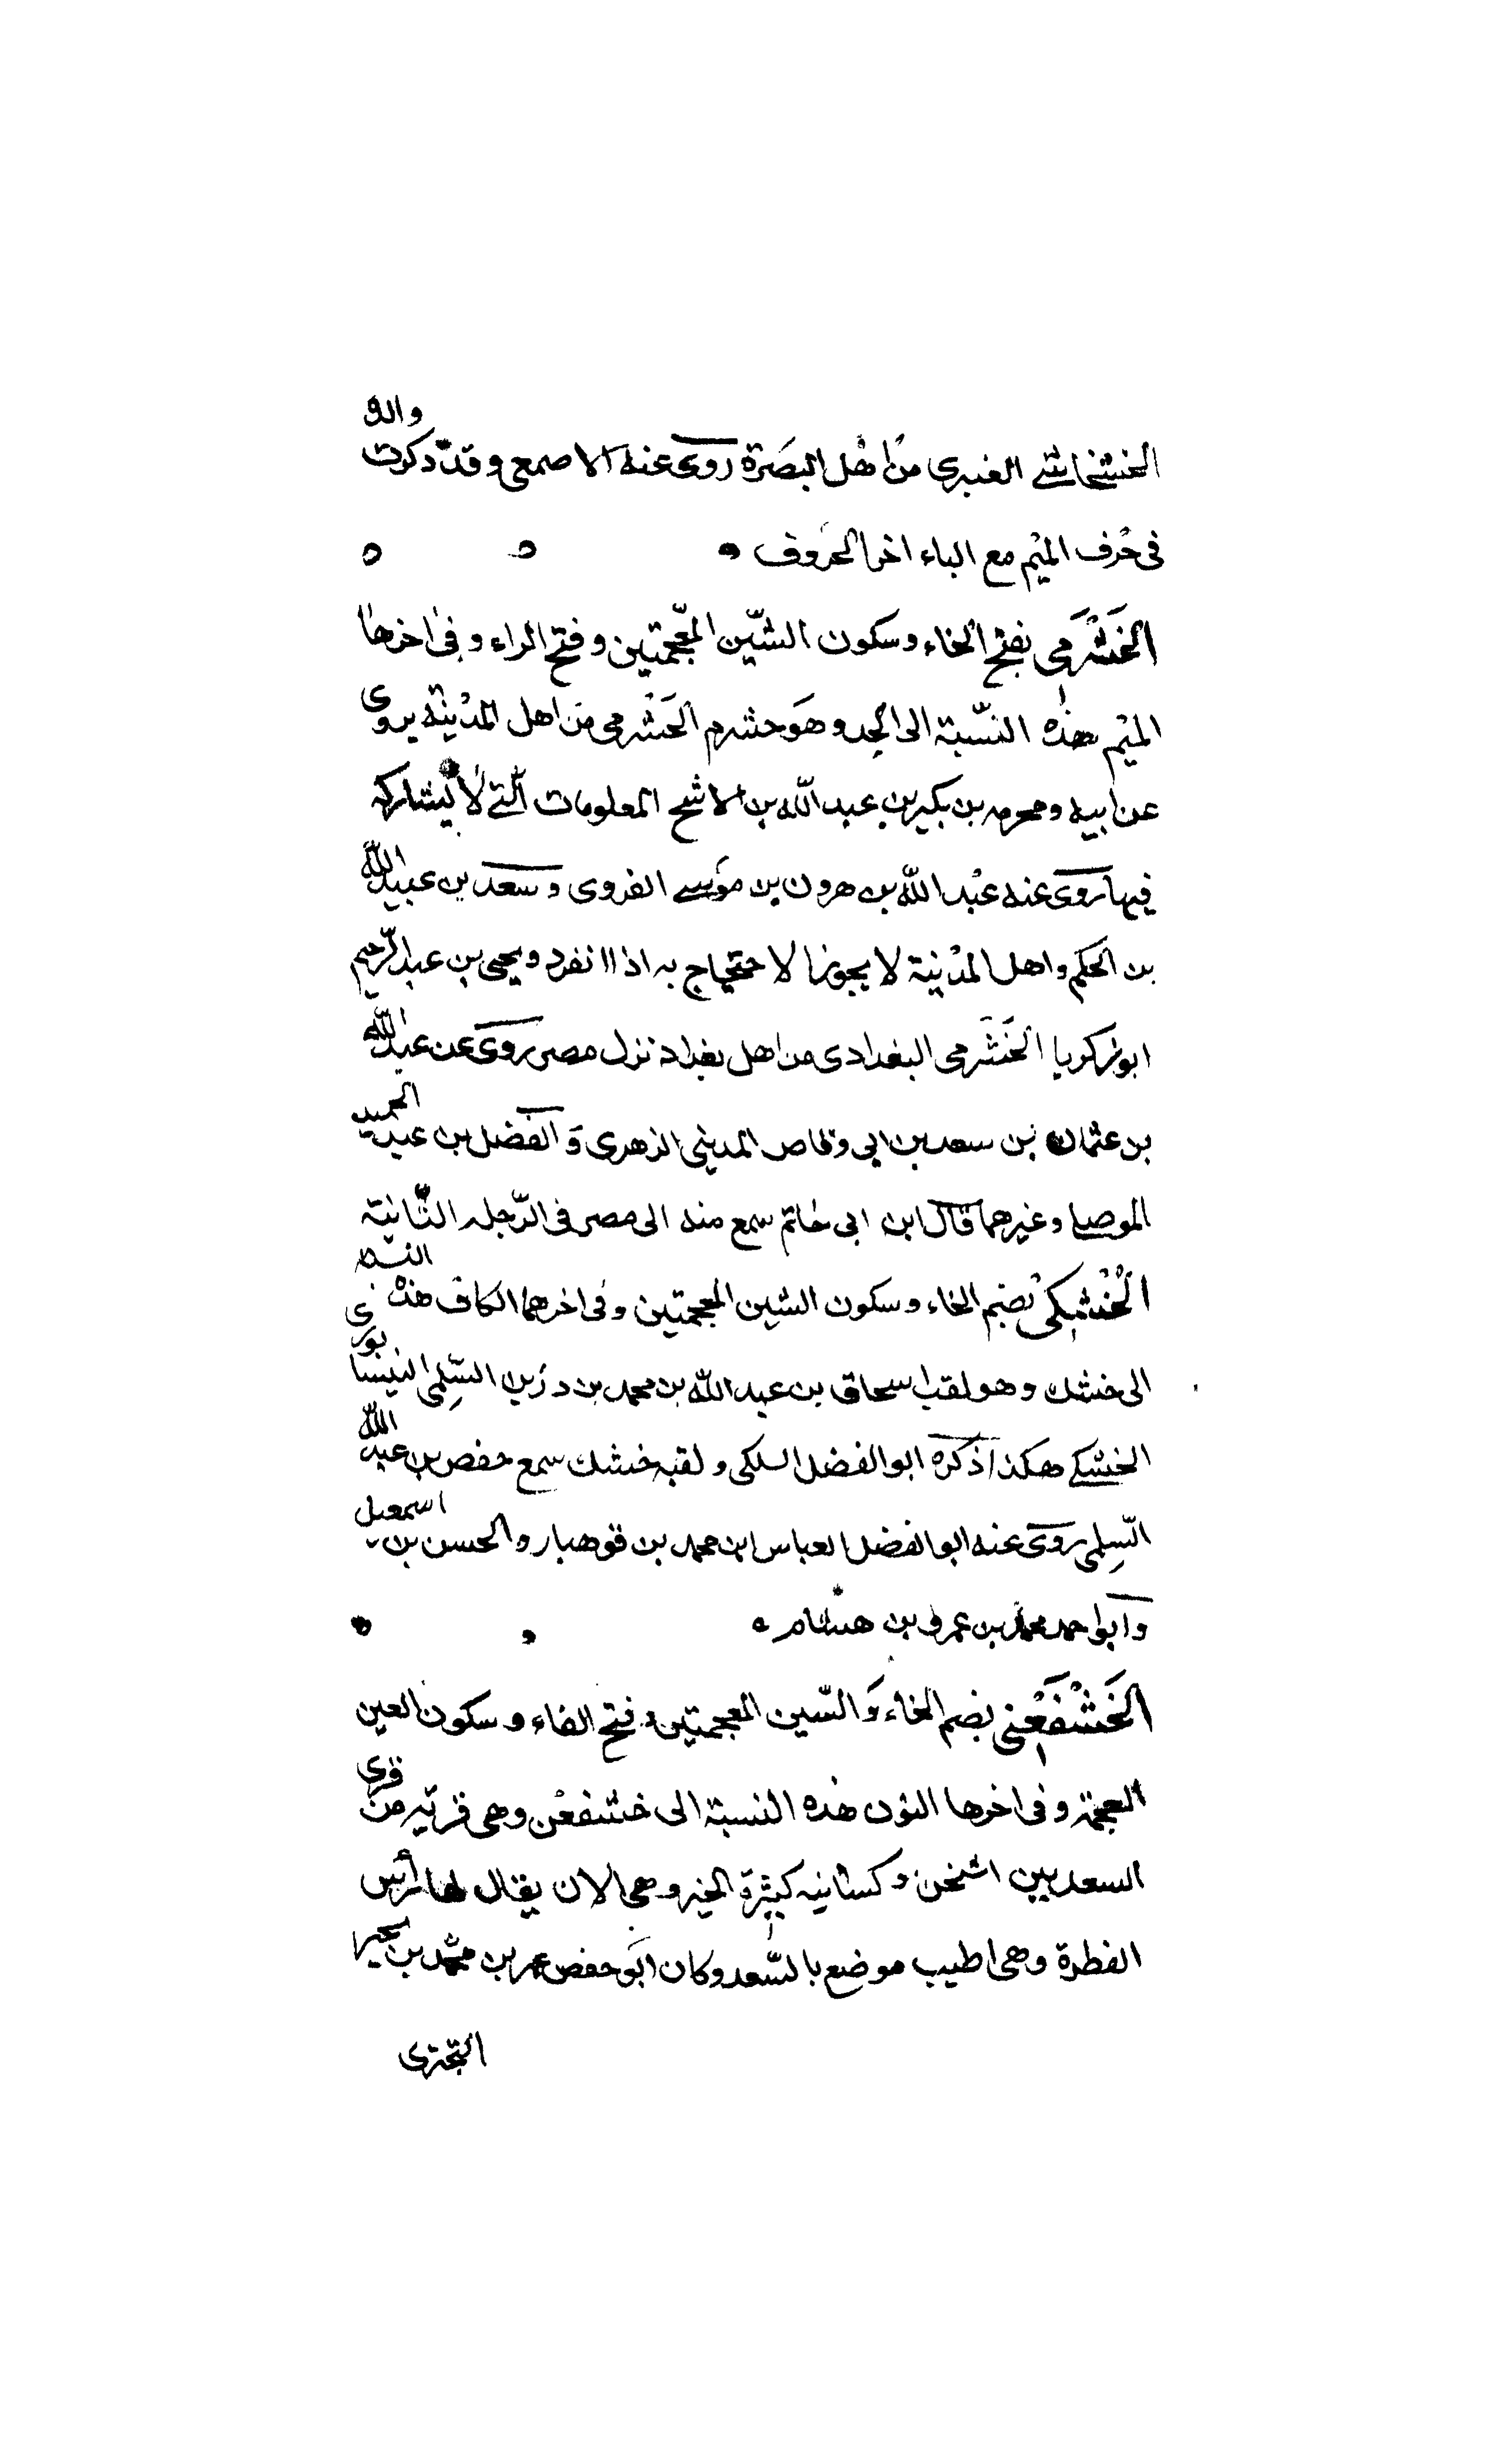 الخشخاشي العنبري من اهل البصرة روى عنه الاصمعي وقد ذكرت والد
في حرف الميم مع الياء اخر الحروف
الخَشْرَمي بفتح الخاء وسكون الشين المعجمتين وفتح الراء وفي اخرها
الميم هذه النسبة الى الجد وهو خشرم الخشرمي من اهل المدينة يروى
عن ابيه ومخرمه بن بكير بن عبد الله بن الاشج المعلومات التي لا يشاركه
فيها روى عنه عبد الله بن هرون بن موسى الفروى وسعد بن عبيد الله
بن الحكم واهل المدينة لا يجوز الاحتجاج به اذا انفرد ويحيى بن عبد الرحيم
ابو زكريا الخشرمي البغدادي من اهل بغداد نزل مصر روى عن عبد الله
بن عثمان بن سعد بن ابي وقاص المديني الزهرى والفضل بن عبد الحميد
الموصلي وغيرهما قال ابن ابي حاتم سمع منه ابي مصر في الرجله الثانية
الخُشْكي بضم الخاء وسكون الشين المعجمتين وفي اخرهما الكاف هذه النسبه
الى خشك وهو لقب اسحاق بن عبد الله بن محمد بن رزين السلمي النيسابورى
الخشكي هكذا ذكره ابو الفضل السلكى ولقبه خشك سمع حفص بن عبد الله
السلمي روى عنه ابو الفضل العباس بن محمد بن قوهيار والحسن بن اسمعيل
وابو احمد محمد بن عمرو بن هشام
الخَشْفَغْني بضم الخاء والشين المعجمتين وفتح الفاء وسكون العين
المعجمة وفي اخرها النون هذه النسبة الى خشفغن وهي قرية من قرى
السعد بين اشتخن وكشانيه كثيرة الخير وهي الان يقال لها راس
القطرة وهي اطيب موضع بالسغد وكان ابو حفص عمر بن محمد بن بحير
البجترى